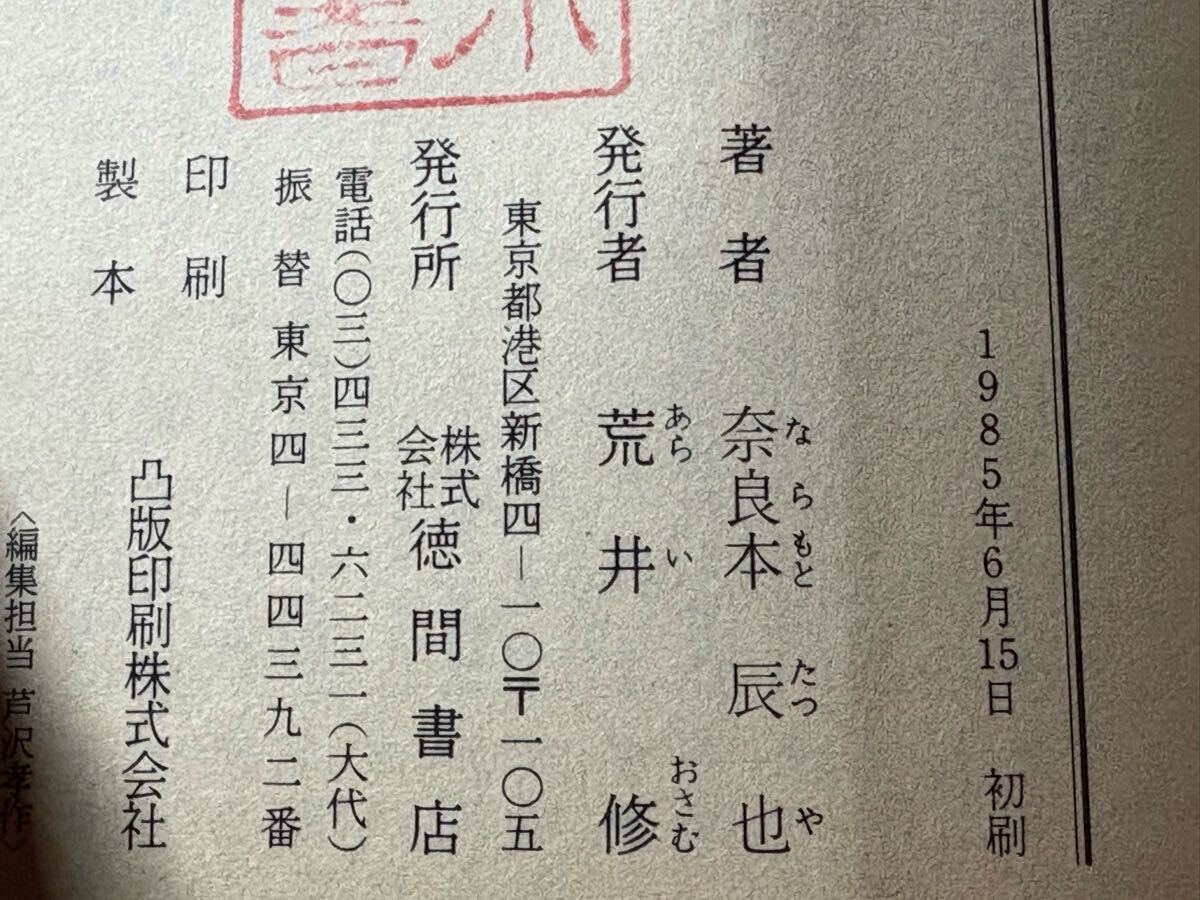 1985年6月15日 初刷
著者 奈良本辰也
ならもとたつや
発行者 荒井修
あらいおさむ
東京都港区新橋四―一〇〒一〇五
発行所 株式会社徳間書店
電話(〇三)四三三・六二三一(大代)
振替 東京四―四四三九二番
印刷
製本
凸版印刷株式会社
〈編集担当 芦沢孝作〉